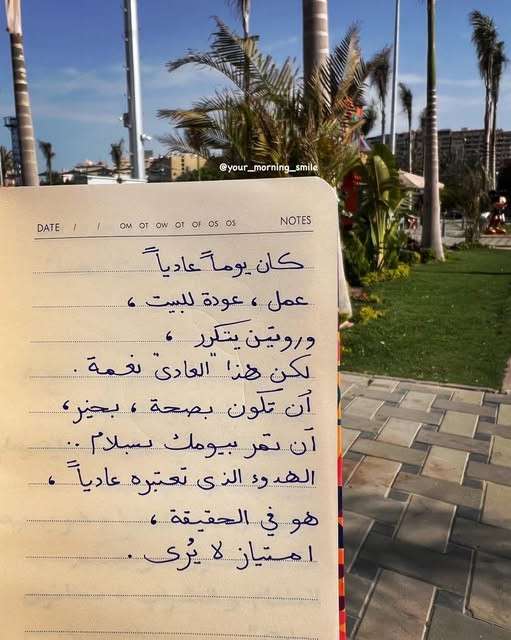 @your_morning_smile
DATE / / OM OT OW OT OF OS OS NOTES
كان يوماً عادياً
عمل ، عودة للبيت ،
وروتين يتكرر ،
لكن هذا "العادى" نعمة .
أن تكون بصحة ، بخير،
أن تمر بيومك بسلام ..
الهدوء الذى تعتبره عادياً ،
هو في الحقيقة ،
امتياز لا يُرى .